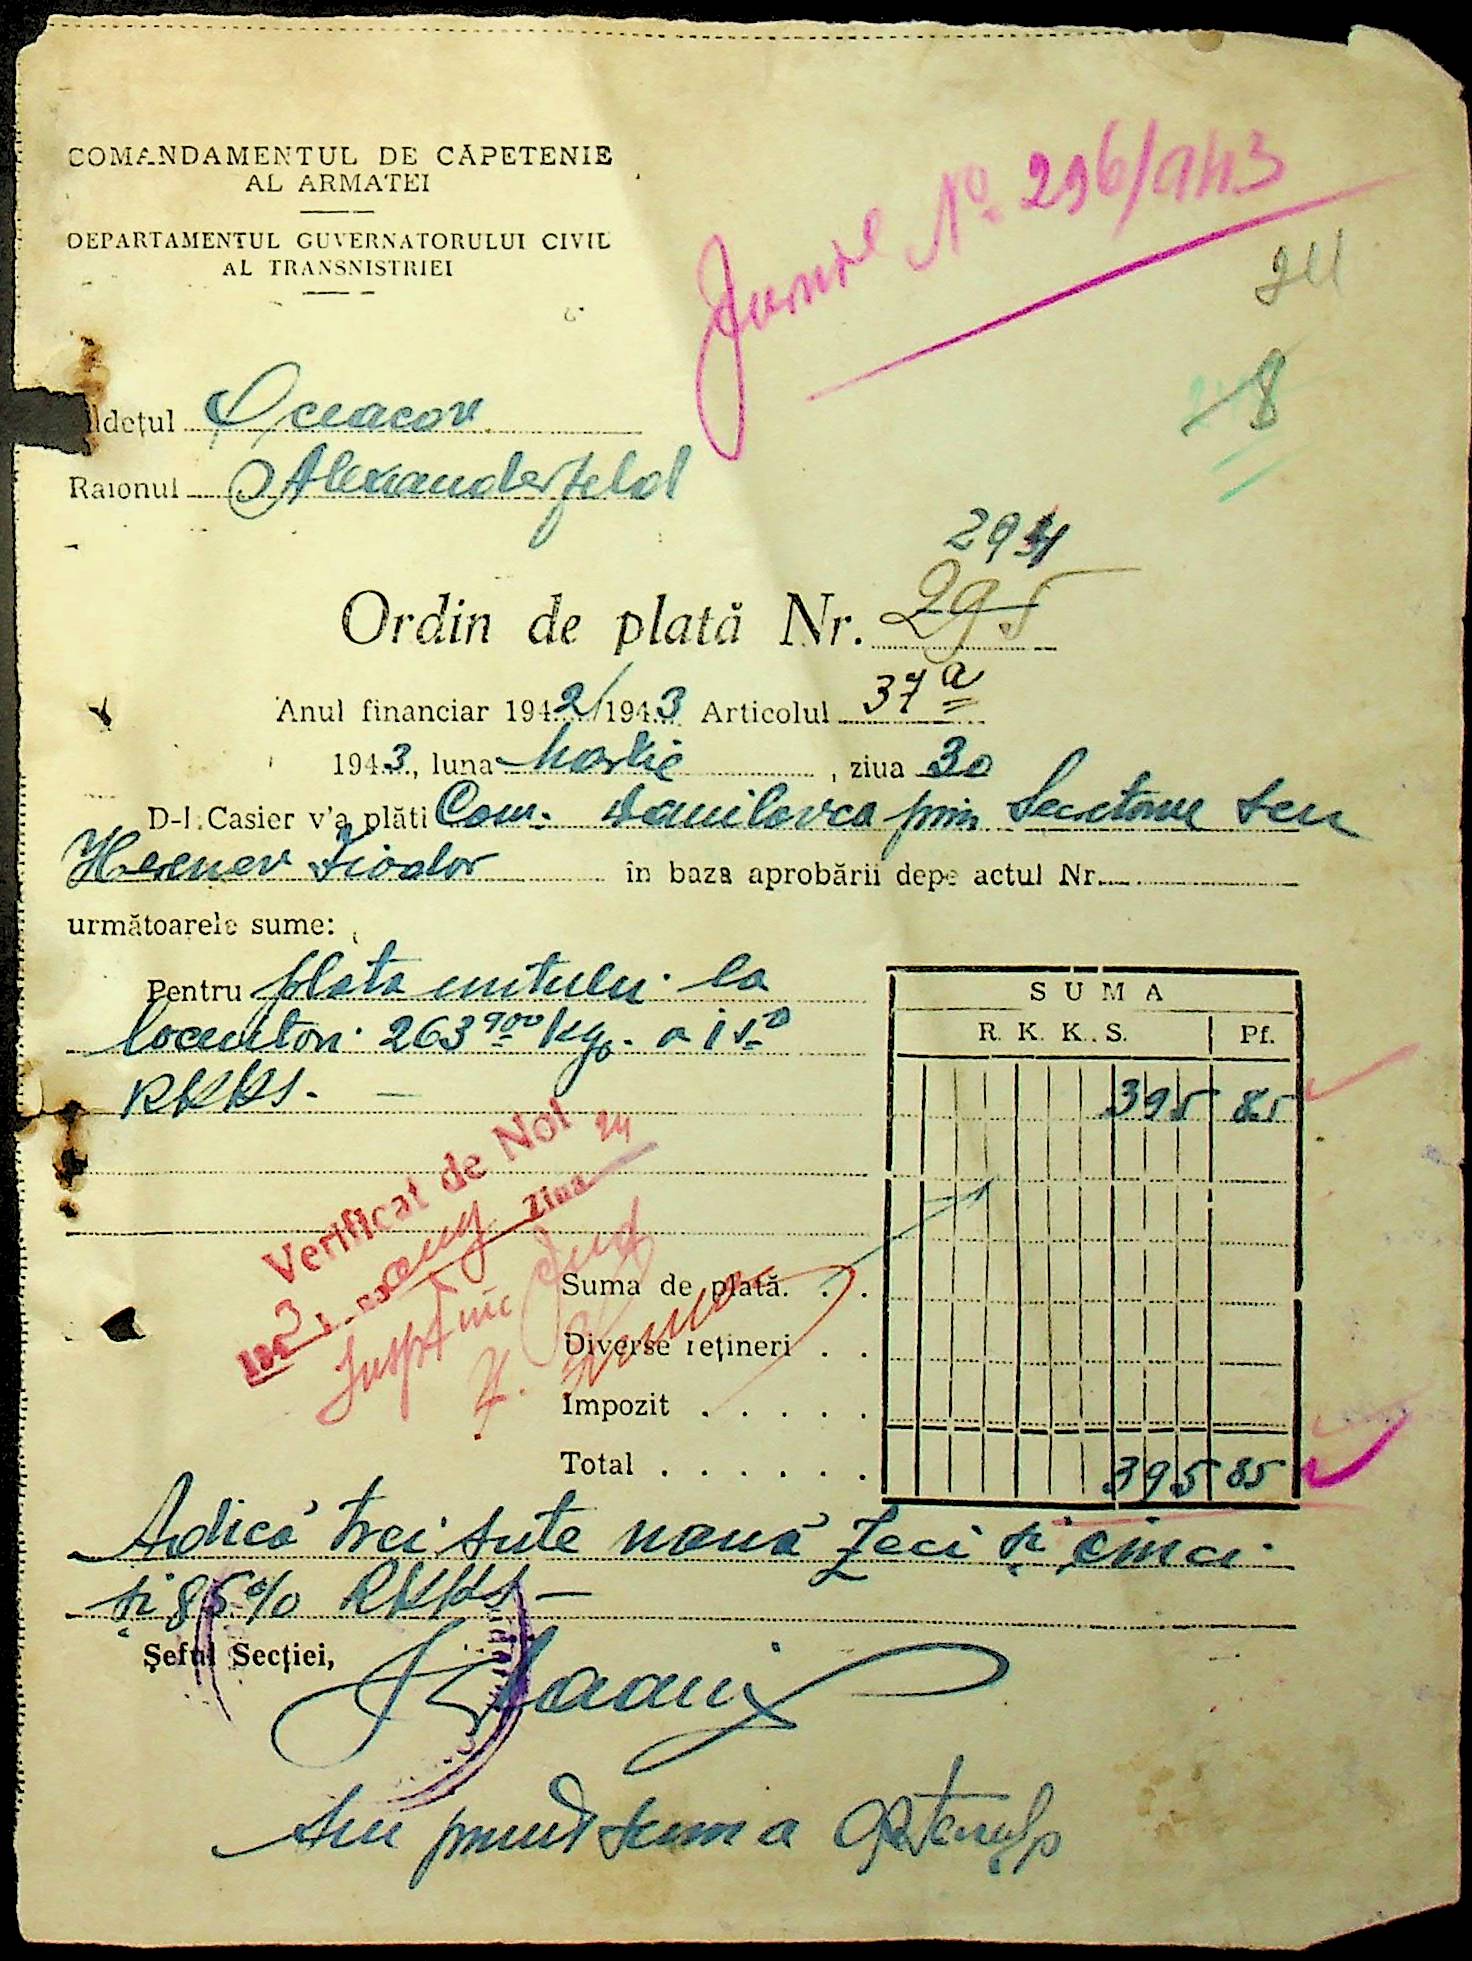 COMANDAMENTUL DE CĂPETENIE
AL ARMATEI
DEPARTAMENTUL GUVERNATORULUI CIVIL
AL TRANSNISTRIEI
Jurnal No. 296/943
8
dețul Oceacov
Raionul Alexanderfeld
294
Ordin de plată Nr. 295
Anul financiar 1942/1943 Articolul 37 a
1943, luna Martie, ziua 30
D-l. Casier v'a plăti Com. Danilovca prin
Fiodor în baza aprobării depe actul Nr.
următoarele sume:
Pentru plata untului la
locuitori 263 900 kg. a 1 50
RKKS. —
SUMA
R. K. K. S. Pf.
395 85
Verificat de Noi
Ziua 24
Suma de plată. . .
Diverse rețineri . .
Impozit . . . . .
Total . . . . . . . 395 85
Adică trei sute nouă zeci și cinci
și 85% RKKS —
Șeful Secției,
Am primit suma